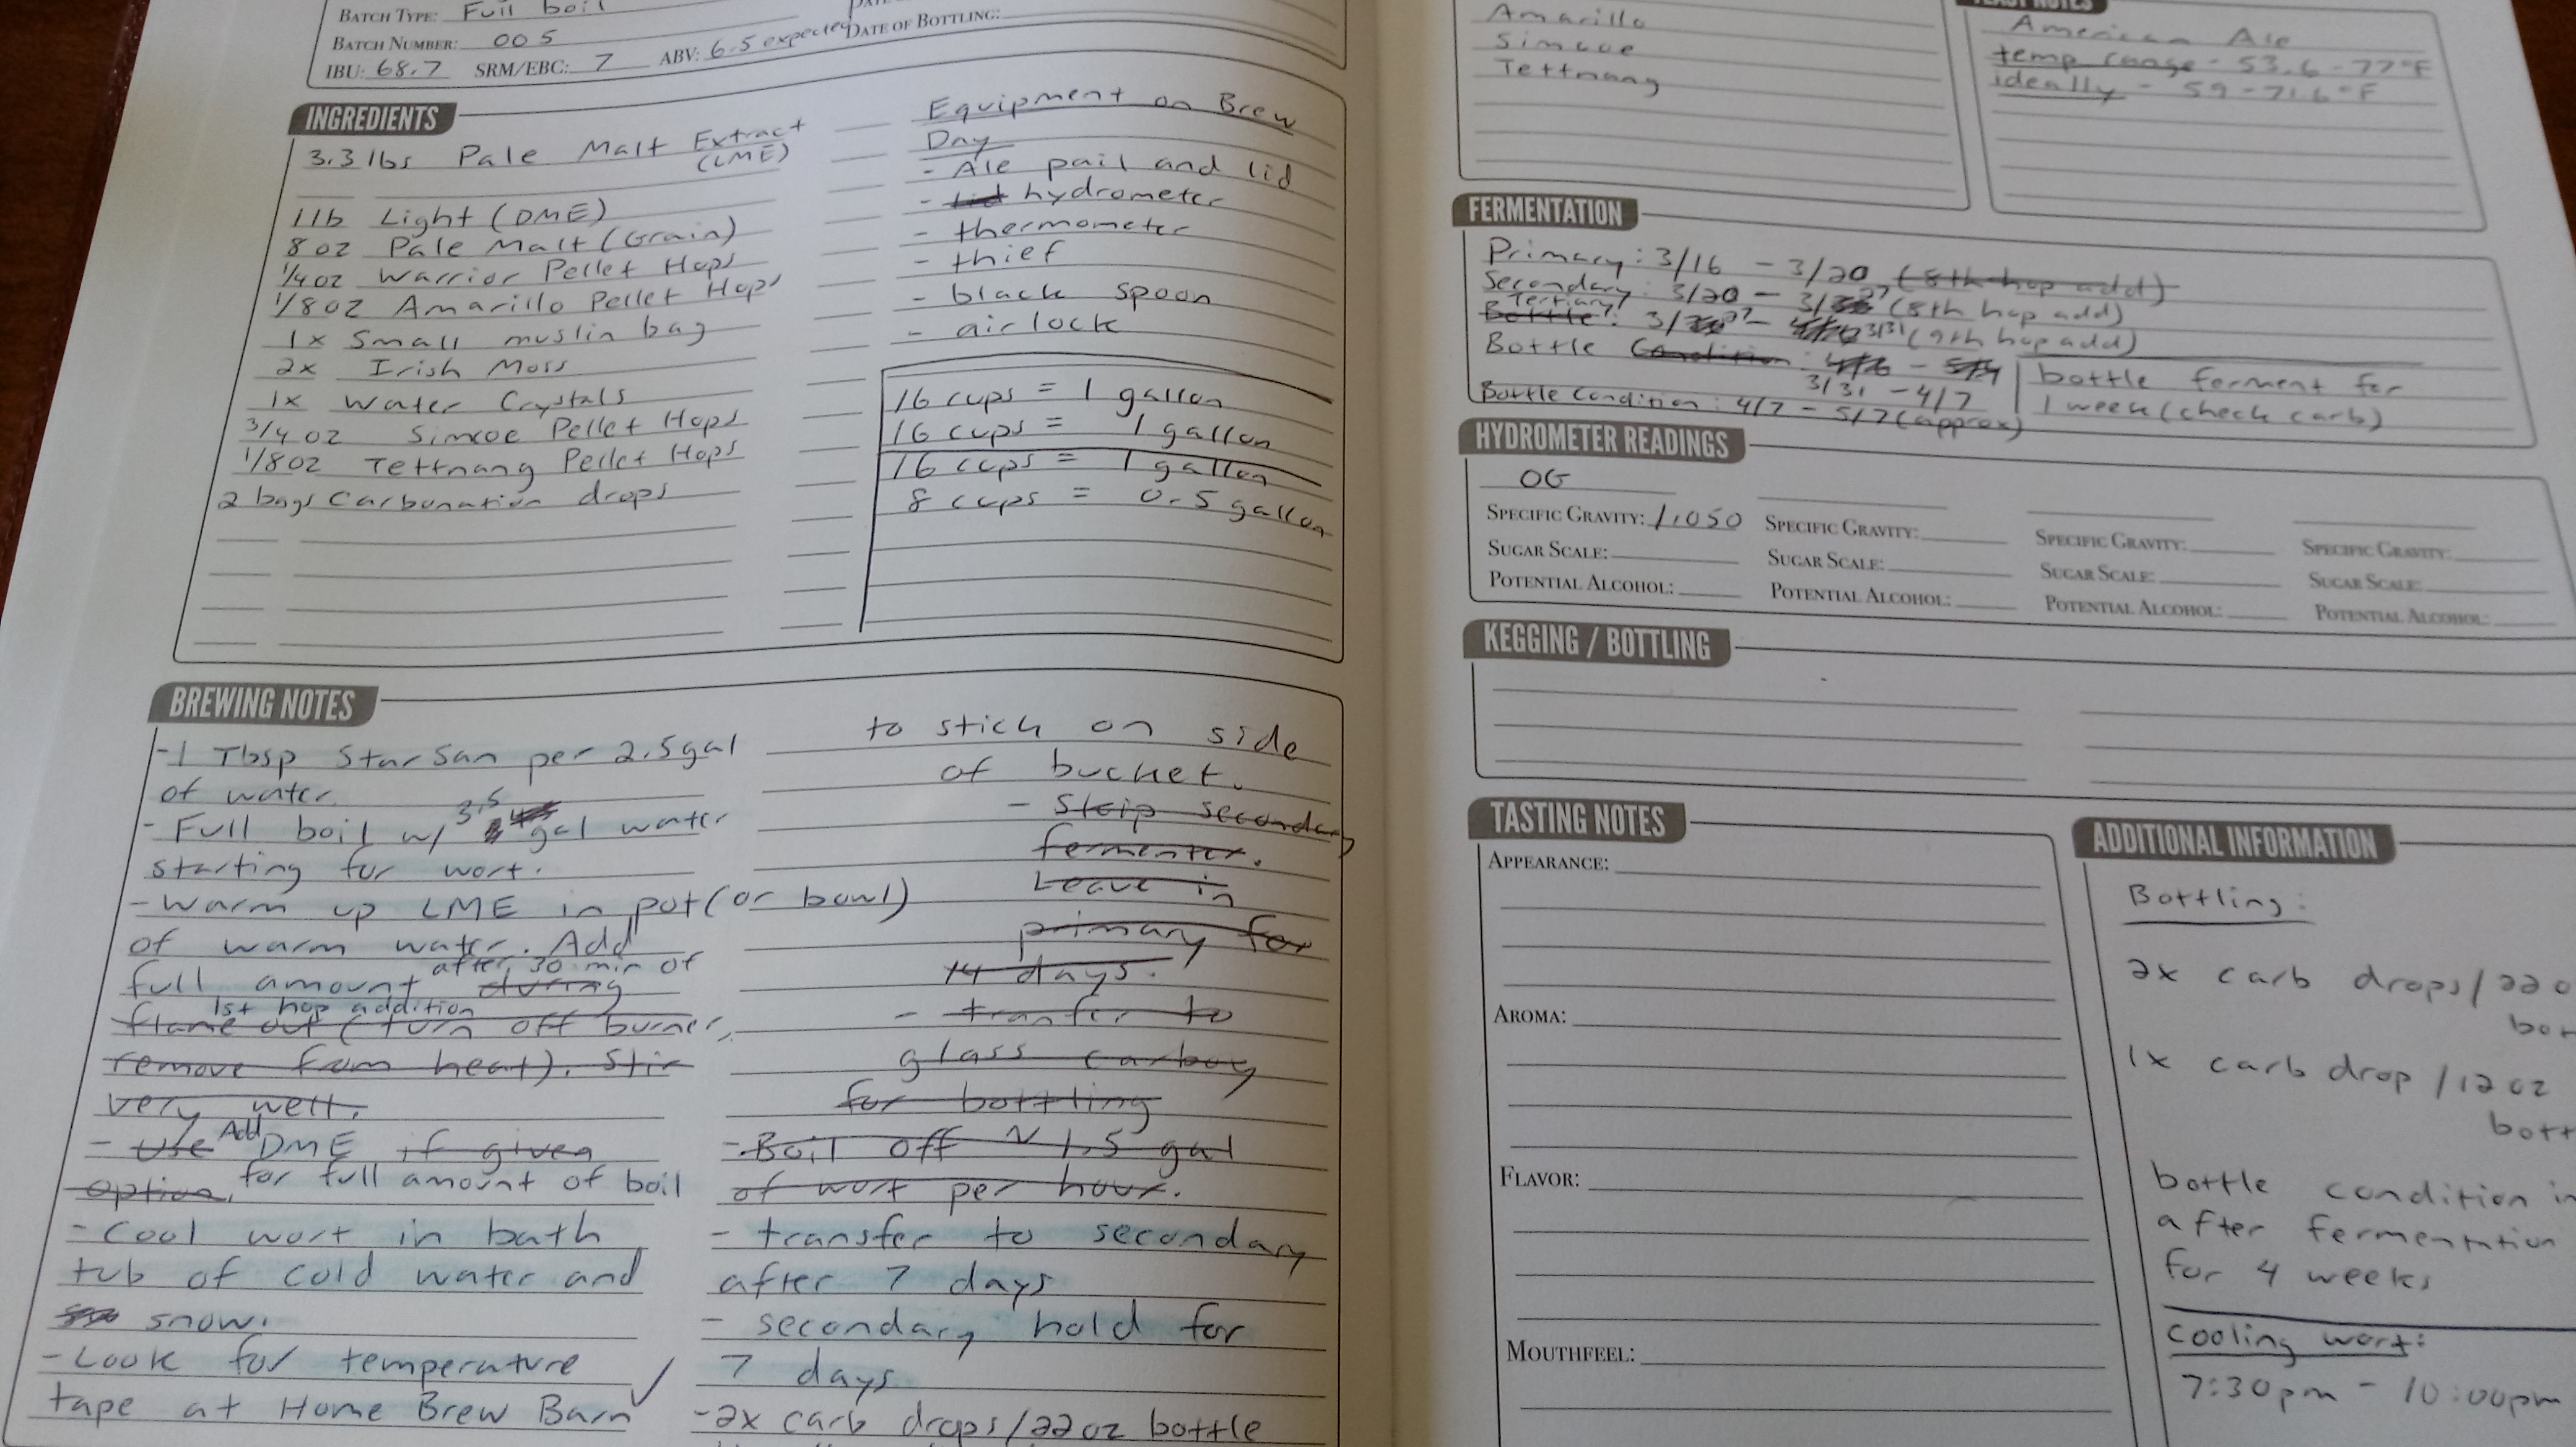 BATCH TYPE: Full boil
BATCH NUMBER: 005
DATE OF BOTTLING:
IBU: 68.7 SRM/EBC: 7 ABV: 6.5 expected
INGREDIENTS
3.3 lbs Pale Malt Extract
(LME)
1 lb Light (DME)
8 oz Pale Malt (Grain)
1/4 oz Warrior Pellet Hops
1/8 oz Amarillo Pellet Hops
1x Small muslin bag
2x Irish Moss
1x Water Crystals
3/4 oz Simcoe Pellet Hops
1/8 oz Tettnang Pellet Hops
2 bags Carbonation drops
Equipment on Brew
Day
- Ale pail and lid
- lid hydrometer
- thermometer
- thief
- black spoon
- airlock
16 cups = 1 gallon
16 cups = 1 gallon
16 cups = 1 gallon
8 cups = 0.5 gallon
BREWING NOTES
- 1 Tbsp Star San per 2.5gal
of water.
- Full boil w/ 3.5 gal water
starting for wort.
- Warm up LME in pot (or bowl)
of warm water. Add
after 30 min of
full amount during
1st hop addition
flame out (turn off burner,
remove from heat). Stir
very well.
- Use Add DME if given
option. for full amount of boil
- Cool wort in bath
tub of cold water and
snow.
- Look for temperature
tape at Home Brew Barn ✓
to stick on side
of bucket.
- Skip secondary
fermenter.
Leave in
primary for
14 days.
- tranfer to
glass carboy
for bottling
- Boil off ~ 1.5 gal
of wort per hour.
- transfer to secondary
after 7 days
- secondary hold for
7 days
- 2x carb drops/22oz bottle
Amarillo
Simcoe
Tettnang
YEAST NOTES
American Ale
temp range - 53.6 - 77°F
ideally - 59 - 71.6°F
FERMENTATION
Primary: 3/16 - 3/20 (8th hop add)
Secondary: 3/20 - 3/27 (8th hop add)
Tertiary?
Bottle?: 3/27 - 3/31 (9th hop add)
Bottle Condition: 4/6 - 5/4
3/31 - 4/7
bottle ferment for
1 week (check carb)
Bottle Condition: 4/7 - 5/7 (approx)
HYDROMETER READINGS
OG
SPECIFIC GRAVITY: 1.050 SPECIFIC GRAVITY: SPECIFIC GRAVITY: SPECIFIC GRAVITY:
SUGAR SCALE: SUGAR SCALE: SUGAR SCALE: SUGAR SCALE:
POTENTIAL ALCOHOL: POTENTIAL ALCOHOL: POTENTIAL ALCOHOL: POTENTIAL ALCOHOL:
KEGGING / BOTTLING
TASTING NOTES
APPEARANCE:
AROMA:
FLAVOR:
MOUTHFEEL:
ADDITIONAL INFORMATION
Bottling:
2x carb drops/22 o
bot
1x carb drop /12 oz
bott
bottle condition in
after fermentation
for 4 weeks
Cooling wort:
7:30pm - 10:00pm